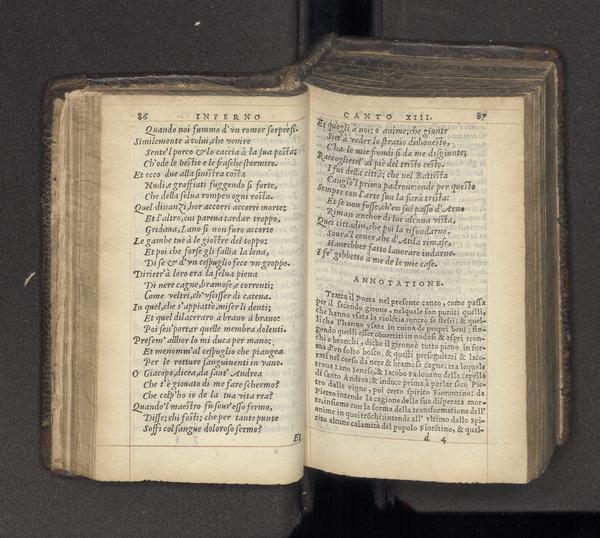 86 INFERNO
Quando noi fummo d'vn romor sorpresi.
Similemente à colui, che venire
Sente'l porco & lo caccia à la sua posta;
Ch'ode le bestie e le frasche stormire.
Et ecco due alla sinistra costa
Nudi, e graffiati fuggendo sì forte,
Che della selua rompen ogni rosta.
Quel dinanzi, hor accorri accorri morte;
Et l'altro, cui pareua tardar troppo,
Gridaua, Lano sì non furo accorte
Le gambe tue à le giostre del toppo;
Et poi che forse gli fallia la lena,
Di se & d'vn cespuglio fece vn groppo.
Dirietr'à loro era la selua piena
Di nere cagne, bramose, e correnti;
Come veltri, ch'vscisser di catena.
In quel, che s'appiattò, miser li denti;
Et quel dilaceraro à brano à brano:
Poi sen'portar quelle membra dolenti.
Presem' allhor lo mi duca per mano;
Et menomm'al cespuglio che piangea
Per le rotture sanguinenti in vano.
O Giacopo, dicea, da sant' Andrea
Che t'è giouato di me fare schermo?
Che colp'ho io de la tua vita rea?
Quando'l maestro fù sour'esso fermo,
Disse; chi fosti; che per tante punte
Soffi col sangue doloroso sermo?
Et
CANTO XIII. 87
Et quegli à noi; o anime; che giunte
Siet'à veder lo stratio dishonesto,
C'ha le mie frondi sì da me disgiunte;
Raccoglietel'al piè del tristo cesto.
I fui della città; che nel Batista
Cangiò'l primo padrone: onde per questo
Sempre con l'arte sua la farà trista:
Et se non fosse, ch'en sul passo d'Arno
Riman anchor di lui alcuna vista,
Quei cittadin, che poi la rifondarno,
Soura'l cener, che d'Atila rimase,
Haurebber fatto lauorare indarno.
I fe' gibbetto à me de le mie case.
ANNOTATIONE.
Tratta il Poeta nel presente canto, come passa
per il secondo girone, nelquale son puniti quelli,
che hanno vsata la violẽtia contro se stessi; & quel-
li che l'hanno vsata in ruina de propri beni; fin-
gendo quelli esser cõuertiti in nodosi & aspri tron-
chi e bronchi, diche il girone è tutto pieno in for-
ma d'vn folto bosco; & questi perseguitati & lace-
rati nel corso da nere & bramose cagne; tra lequale
troua Lano Senese, & Iacobo padouano della capella
di santo Andrea; & induce prima à parlar seco Pie-
tro dalle vigne, poi certo spirito Fiorentino; da
Pietro intende la cagione della sua disperata mor-
te, insieme con la forma della transformatione dell'
anime in quei trõchi intende all' vltimo dallo Spi-
rito alcune calamità del popolo Fiorẽtino, & qual-
d 4